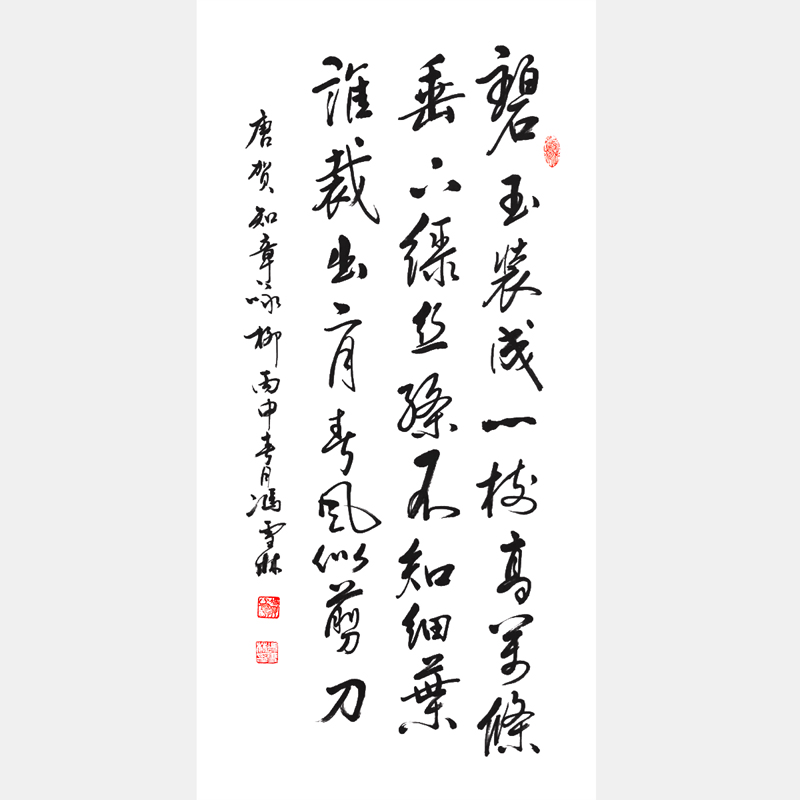 碧玉装成一树高萬條
垂下绿丝绦不知细葉
誰裁出二月春风似剪刀
唐贺知章咏柳丙申春月冯雪林